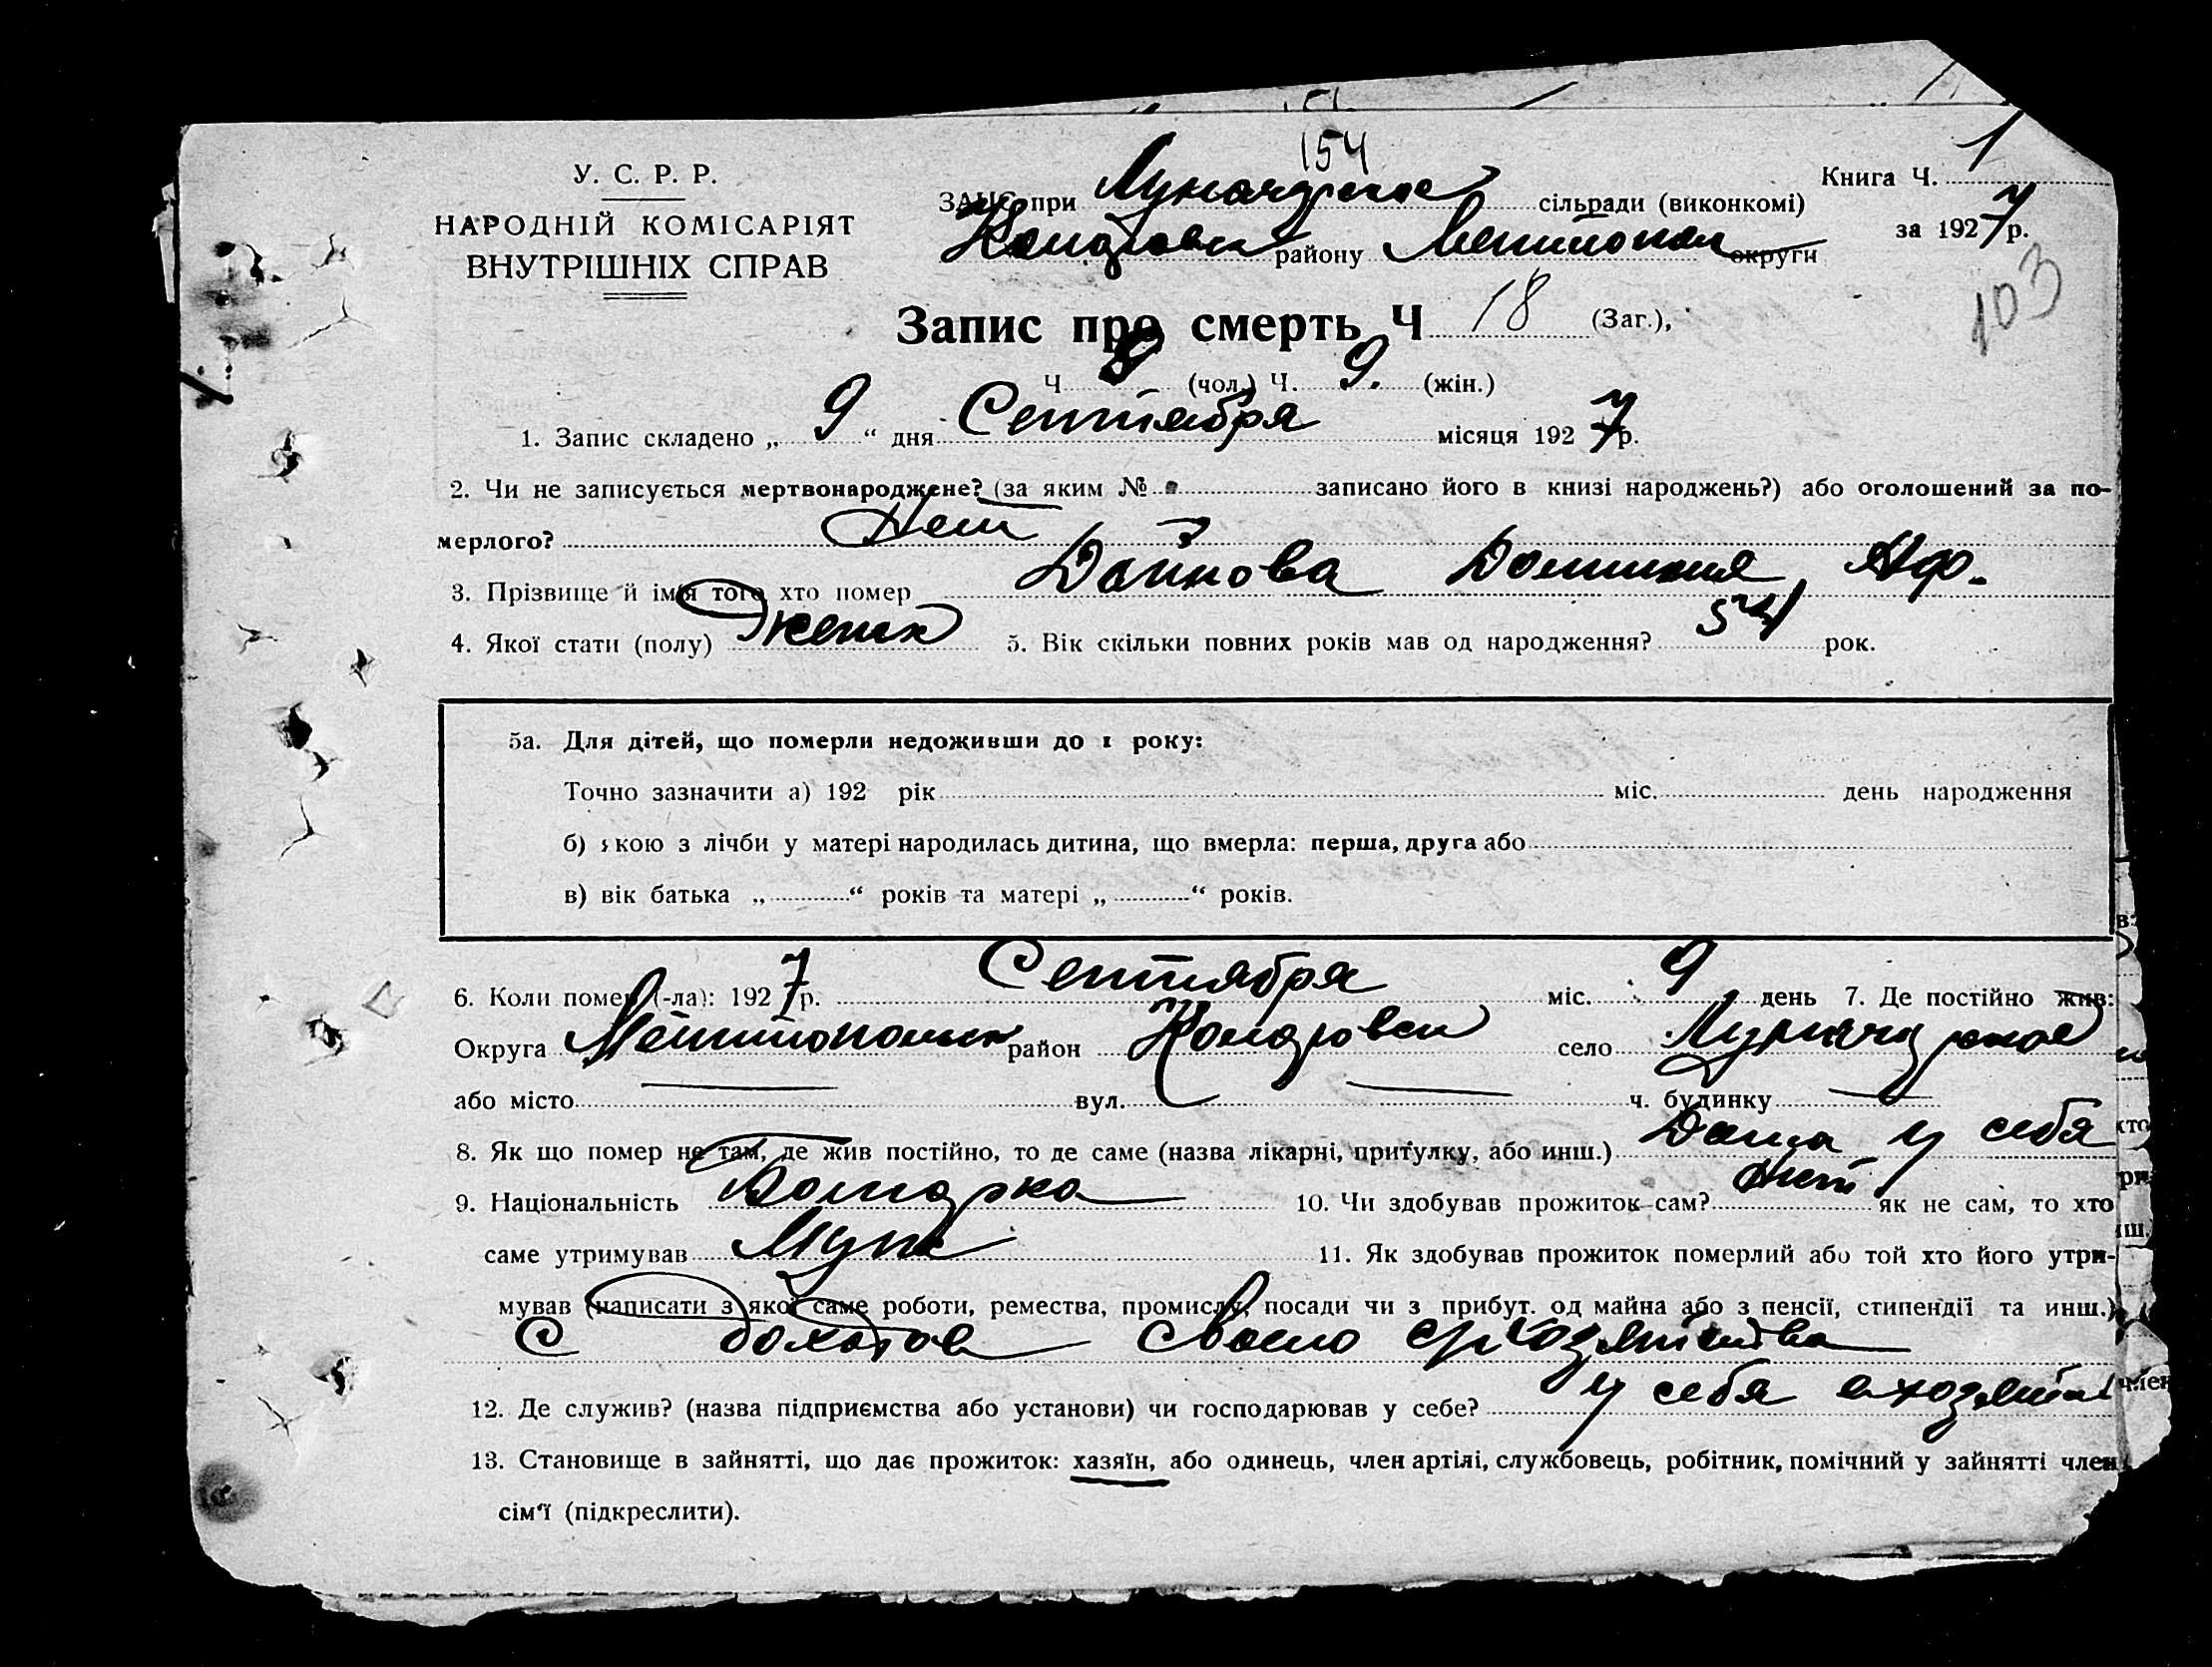 154
У. С. Р. Р.
НАРОДНІЙ КОМІСАРІЯТ
ВНУТРІШНІХ СПРАВ
Книга Ч. 1
ЗАГС при сільради (виконкомі)
району округи
за 1927 р.
103
Запис про смерть Ч 18 (Заг.),
Ч 9 (чол.) Ч. 9. (жін.)
1. Запис складено „ 9 “ дня Сентября місяця 1927 р.
2. Чи не записується мертвонароджене? (за яким № записано його в книзі народжень?) або оголошений за по-
мерлого? Нет
3. Прізвище й ім'я того хто помер Дойнова Аф.
4. Якої стати (полу) женск 5. Вік скільки повних років мав од народження? 54 рок.
5а. Для дітей, що померли недоживши до 1 року:
Точно зазначити а) 192 рік міс. день народження
б) якою з лічби у матері народилась дитина, що вмерла: перша, друга або
в) вік батька „ “ років та матері „ “ років.
6. Коли помер (-ла): 1927 р. Сентября міс. 9 день 7. Де постійно жив:
Округа район село
або місто вул. ч. будинку
8. Як що помер не там, де жив постійно, то де саме (назва лікарні, притулку, або инш.) Дома у себя
9. Національність Болгарка 10. Чи здобував прожиток сам? Нет як не сам, то хто
саме утримував Муж 11. Як здобував прожиток померлий або той хто його утри-
мував (написати з якої саме роботи, ремества, промислу, посади чи з прибут. од майна або з пенсії, стипендії та инш.)
С доходов своего с/хозяйства
12. Де служив? (назва підприємства або установи) чи господарював у себе? у себя в хозяйст
13. Становище в зайнятті, що дає прожиток: хазяїн, або одинець, член артілі, службовець, робітник, помічний у зайнятті член
сім'ї (підкреслити).